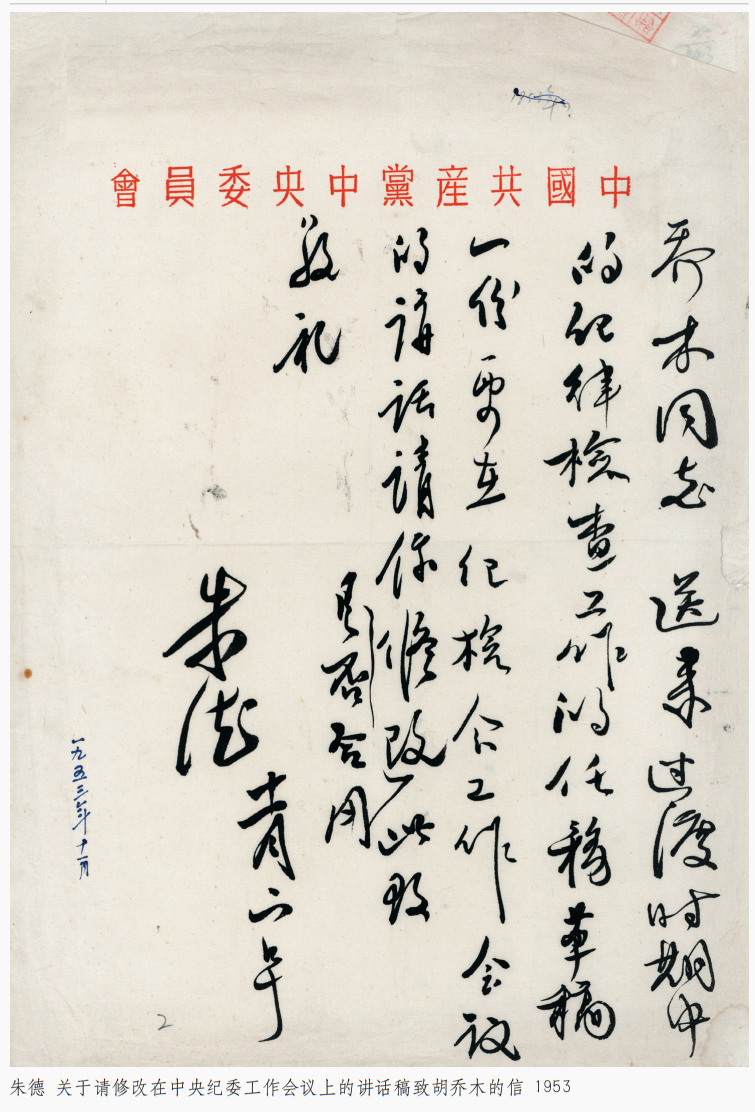 中國共産黨中央委員會
乔木同志 送来过渡时期中
的纪律檢查工作的任务草稿
一份要在纪檢会工作会议
的講話請你修改 此致
是否合用
敬礼
朱德 十一月
一九五三年十一月
2
朱德 关于请修改在中央纪委工作会议上的讲话稿致胡乔木的信 1953